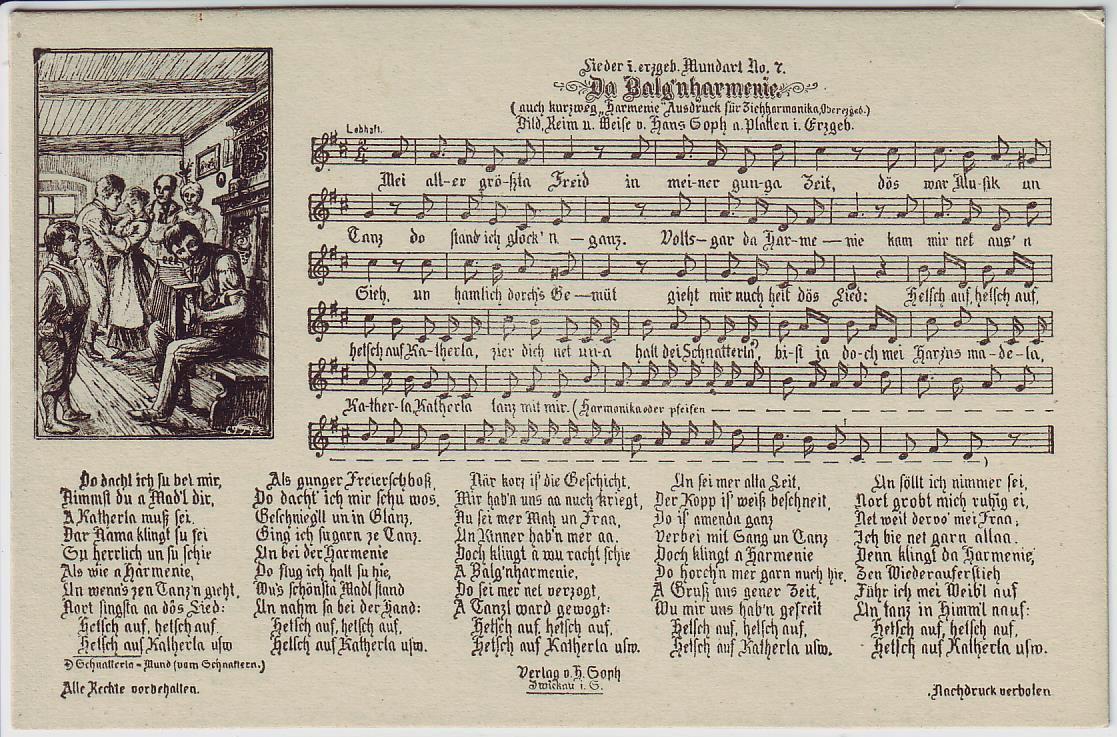 Lieder i. erzgeb. Mundart No. 7.
Da Balg'nharmenie.
(auch kurzweg „Harmenie" Ausdruck für Ziehharmonika, Oberezgeb.)
Bild, Reim u. Weise v. Hans Soph a. Platten i. Erzgeb.
Lebhaft.
Mei all-er grö-ßta Freid in mei-ner gun-ga Zeit, dös war Mu-sik un
Tanz do stand ich glock'n-ganz. Volts-gar da Har-me-nie kam mir net aus'n
Sieh, un hamlich dorch's Ge-müt gieht mir nuch heit dös Lied: Hetsch auf, hetsch auf,
hetsch auf Ka-therla, zier dich net un-a halt dei Schnatterla, bi-st ja do-ch mei Harzns ma-de-la,
Ka-ther-la, Katherla tanz mit mir. (Harmonika oder pfeifen
)
Do dacht ich su bei mir,
Nimmst du a Mad'l dir,
A Katherla muß sei.
Dar Nama klingt su fei
Su herrlich un su schie
Als wie a Harmenie,
Un wenn's zen Tanz'n gieht,
Nort singsta aa dös Lied:
Hetsch auf, hetsch auf,
Hetsch auf Katherla usw
Als gunger Freierschboß,
Do dacht' ich mir schu wos.
Geschniegelt un in Glanz,
Ging ich sugarn ze Tanz.
Un bei der Harmenie
Do flug ich halt su hie,
Wu's schönsta Madl stand
Un nahm sa bei der Hand:
Hetsch auf, hetsch auf,
Hetsch auf Katherla usw.
När korz is' die Geschicht,
Mir hab'n uns aa nuch kriegt,
Nu sei mer Mah un Fraa,
Un Kinner hab'n mer aa.
Doch klingt a wu racht schie
A Balg'nharmenie,
Do sei mer net verzogt,
A Tanzl ward gewogt:
Hetsch auf, hetsch auf,
Hetsch auf Katherla usw.
Un sei mer alta Leit,
Der Kopp is' weiß beschneit,
Do is amenda ganz
Verbei mit Sang un Tanz
Doch klingt a Harmenie
Do horch'n mer garn nuch hie.
A Gruß aus gener Zeit,
Wu mir uns hab'n gefreit
Hetsch auf, hetsch auf,
Hetsch auf Katherla usw.
Un söllt ich nimmer sei,
Nort grobt mich ruhig ei,
Net weit dervo' mei Fraa,
Ich bie net garn allaa.
Denn klingt da Harmenie,
Zen Wiederauferstieh
Führ ich mei Weib'l auf
Un tanz in Himm'l nauf:
Hetsch auf, hetsch auf,
Hetsch auf Katherla usw.
Schnatterla = Mund (vom Schnattern.)
Alle Rechte vorbehalten.
Verlag v. H. Soph
Zwickau i. S.
Nachdruck verboten